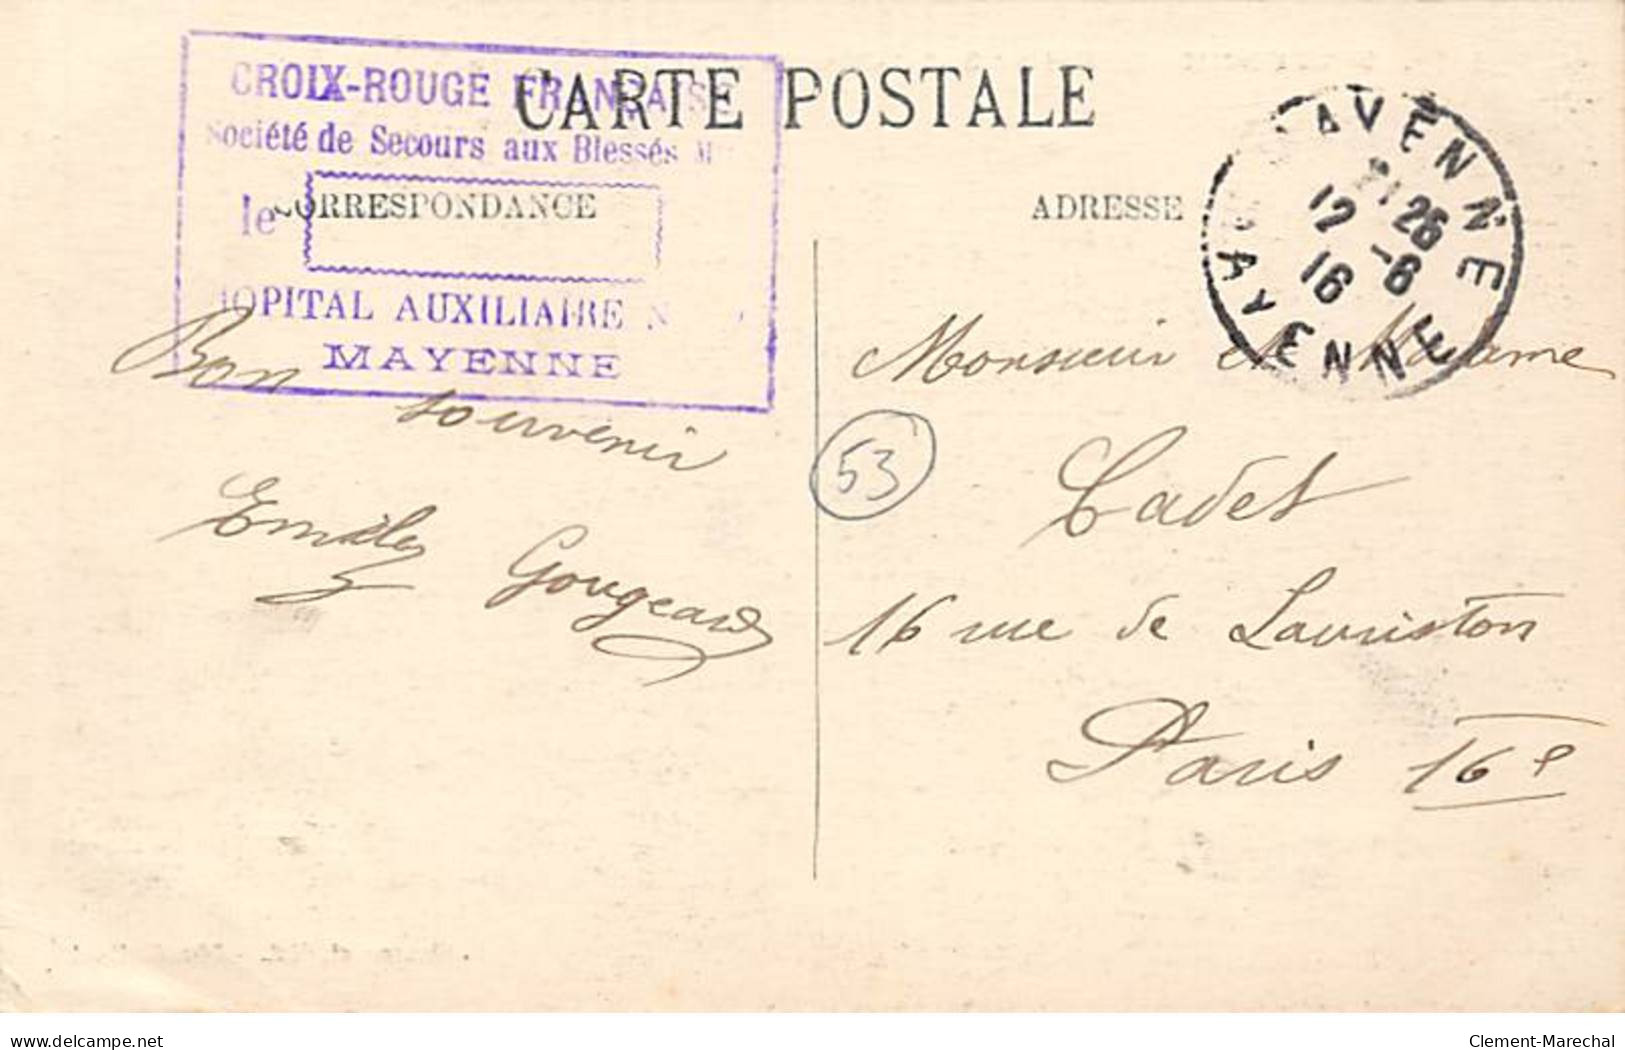 CARTE POSTALE
CROIX-ROUGE FRANÇAISE
Société de Secours aux Blessés
le
CORRESPONDANCE
HOPITAL AUXILIAIRE
MAYENNE
Bon souvenir
Emile Gougeard
ADRESSE
MAYENNE
12 26
16 -6
MAYENNE
Monsieur et Madame
Cadet
53
16 rue de Lauriston
Paris 16e
delcampe.net
Clement-Marechal